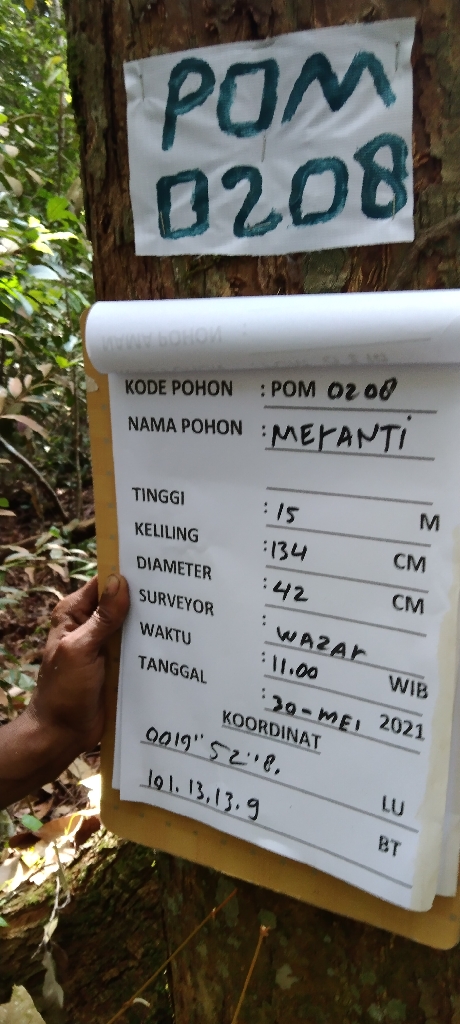 POM
0208
KODE POHON : POM 0208
NAMA POHON : MERANTI
TINGGI : 15 M
KELILING : 134 CM
DIAMETER : 42 CM
SURVEYOR : WAZAR
WAKTU : 11.00 WIB
TANGGAL : 30-MEI 2021
KOORDINAT
0019" 52"8. LU
101.13.13.9 BT